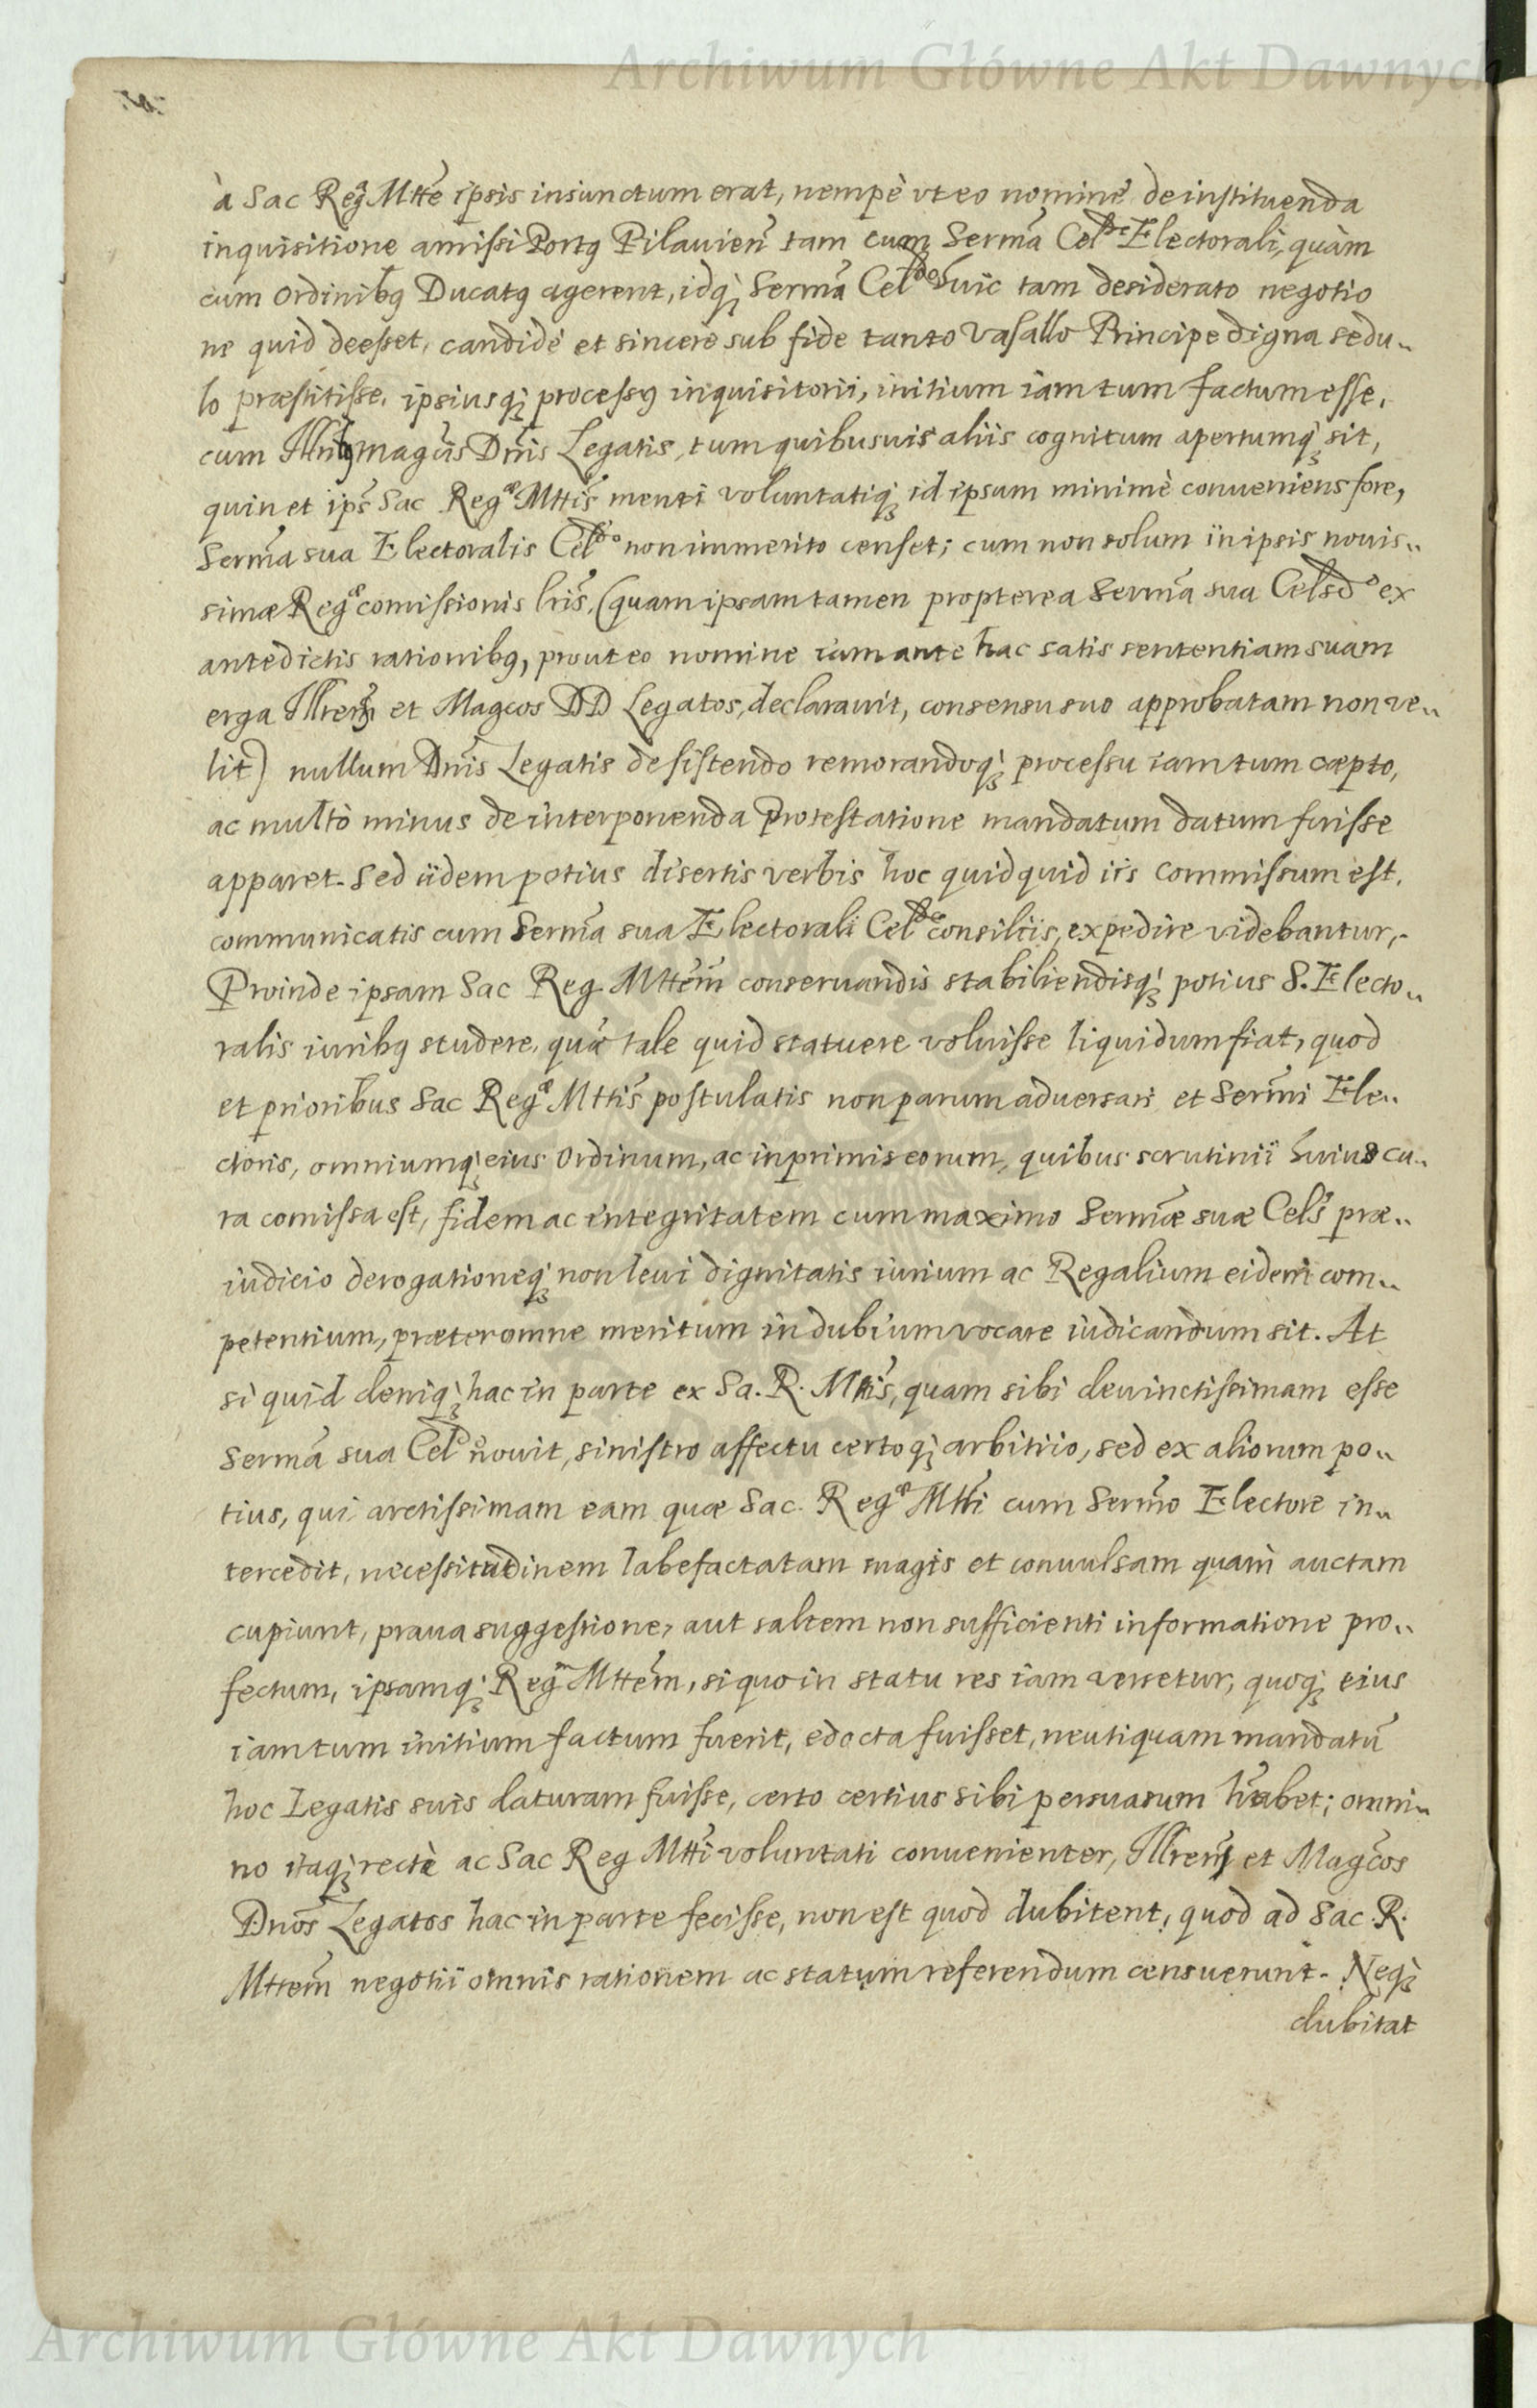 Archiwum Główne Akt Dawnych
à Sac Regᵃ Mtte ipsis iniunctum erat, nempè vt eo nominè de instituenda
inquisitione amissi Portꝰ Pilauien̄ tam cum Sermā Celᵈⁿᵉ Electorali, quàm
cum Ordinibꝰ Ducatꝰ agerent, idq̃ Sermā Celᵈᵒ huic tam desiderato negotio
ne quid deesset, candidè et sincerè sub fide tanto Vasallo Principe digna sedu„
lo præstitisse, ipsiusq̃ processꝰ inquisitorii, initium iam tum factum esse,
cum magcis Dnīs Legatis, tum quibusuis aliis cognitum apertumq̃ sit,
quin et ips̄ Sac Regᵃ Mttis menti voluntatiq̃ id ipsum minimè conueniens fore,
Sermā sua Electoralis Celᵈᵒ non immerito censet; cum non solum iin ipsis nouis„
simæ Regᵃ comissionis lr̄is, (quam ipsam tamen propterea Sermā sua Celsdᵒ ex
antedictis rationibꝰ, prout eo nomine iam ante hac satis sententiam suam
erga Illrem̄ et Magcos DD Legatos, declarauit, consensu suo approbatam non ve„
lit) nullum Dnīs Legatis desistendo remorandoq̃ processu iam tum cæpto,
ac multò minus de interponenda protestatione mandatum datum fuisse
apparet. Sed iidem potius disertis verbis hoc quidquid iis commissum est,
communicatis cum Sermā sua Electorali Celᵈⁿᵉ consiliis, expedire videbantur,
Proinde ipsam Sac Reg Mttem̄ conseruandis stabiliendisq̃ potius S. Electo„
ralis iuribꝰ studere, quā tale quid statuere voluisse liquidum fiat, quod
et prioribus Sac Regᵃ Mttis postulatis non parum aduersari et Serm̄i Ele„
ctoris, omniumq̃ eius Ordinum, ac inprimis eorum, quibus scrutinii huius cu„
ra comissa est, fidem ac integritatem cum maximo Sermæ suæ Cels præ„
iudicio derogationeq̃ non leui dignitatis iurium ac Regalium eidem com„
petentium, præter omne meritum in dubium vocare iudicandum sit. At
si quid deniq̃ hac in parte ex Sa. R. Mttis, quam sibi deuinctissimam esse
Sermā sua Celᵈᵒ nouit, sinistro affectu certoq̃ arbitrio, sed ex aliorum po„
tius, qui arctissimam eam quæ Sac. Regᵃ Mtti cum Sermo Electore in„
tercedit, necessitudinem labefactatam magis et conuulsam quam auctam
cupiunt, praua suggestione, aut saltem non sufficienti informatione pro„
fectum, ipsamq̃ Regᵐ Mttem, si quo in statu res iam versetur, quoq̃ eius
iam tum initium factum fuerit, edocta fuisset, neutiquam mandatū
hoc Legatis suis daturam fuisse, certo certius sibi persuasum habet; omni„
no itaq̃ rectè ac Sac Reg Mtti voluntati conuenienter, Illrem̄ et Magcos
Dnos Legatos hac in parte fecisse, non est quod dubitent, quod ad Sac. R.
Mttem negotii omnis rationem ac statum referendum censuerunt. Neq̃
dubitat
Archiwum Główne Akt Dawnych